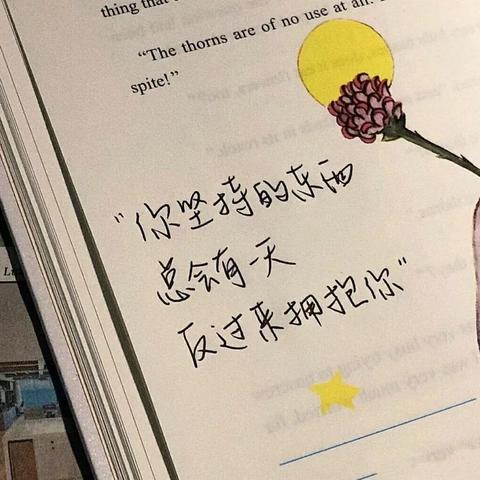 thing that
"The thorns are of no use at all.
spite!"
"你坚持的东西
总会有一天
反过来拥抱你"